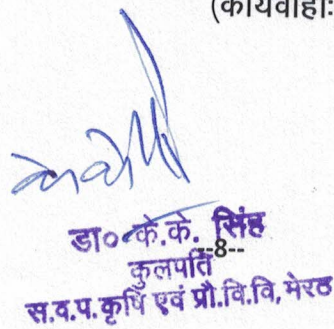 (कार्यवाहीः
डा० के.के. सिंह
--8--
कुलपति
स.व.प.कृषि एवं प्रौ.वि.वि, मेरठ